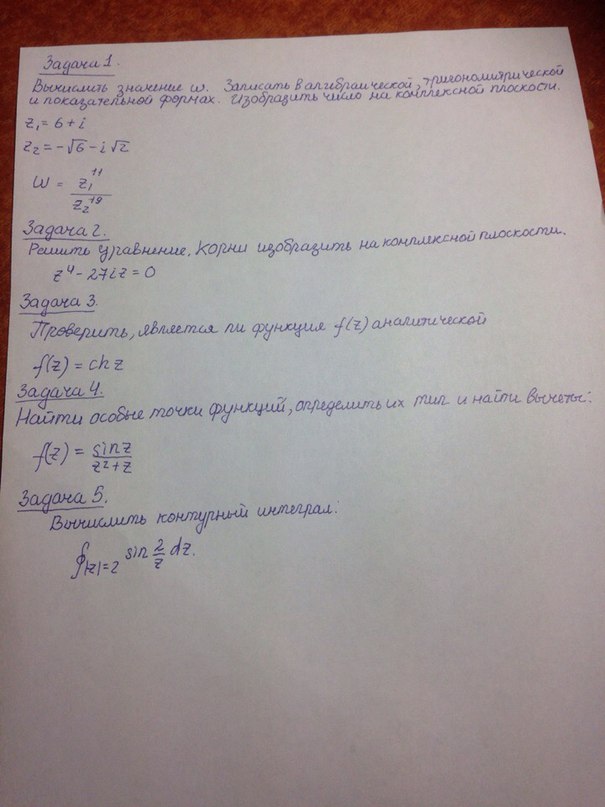 Задача 1.
Вычислить значение w. Записать в алгебраической, тригонометрической
и показательной формах. Изобразить число на комплексной плоскости.
z₁ = 6 + i
z₂ = -√6 - i√2
w = z₁¹¹ / z₂¹⁹
Задача 2.
Решить уравнение. Корни изобразить на комплексной плоскости.
z⁴ - 27iz = 0
Задача 3.
Проверить, является ли функция f(z) аналитической
f(z) = ch z
Задача 4.
Найти особые точки функций, определить их тип и найти вычеты:
f(z) = sin z / z² + z
Задача 5.
Вычислить контурный интеграл:
∮|z|=2 sin 2/z dz.